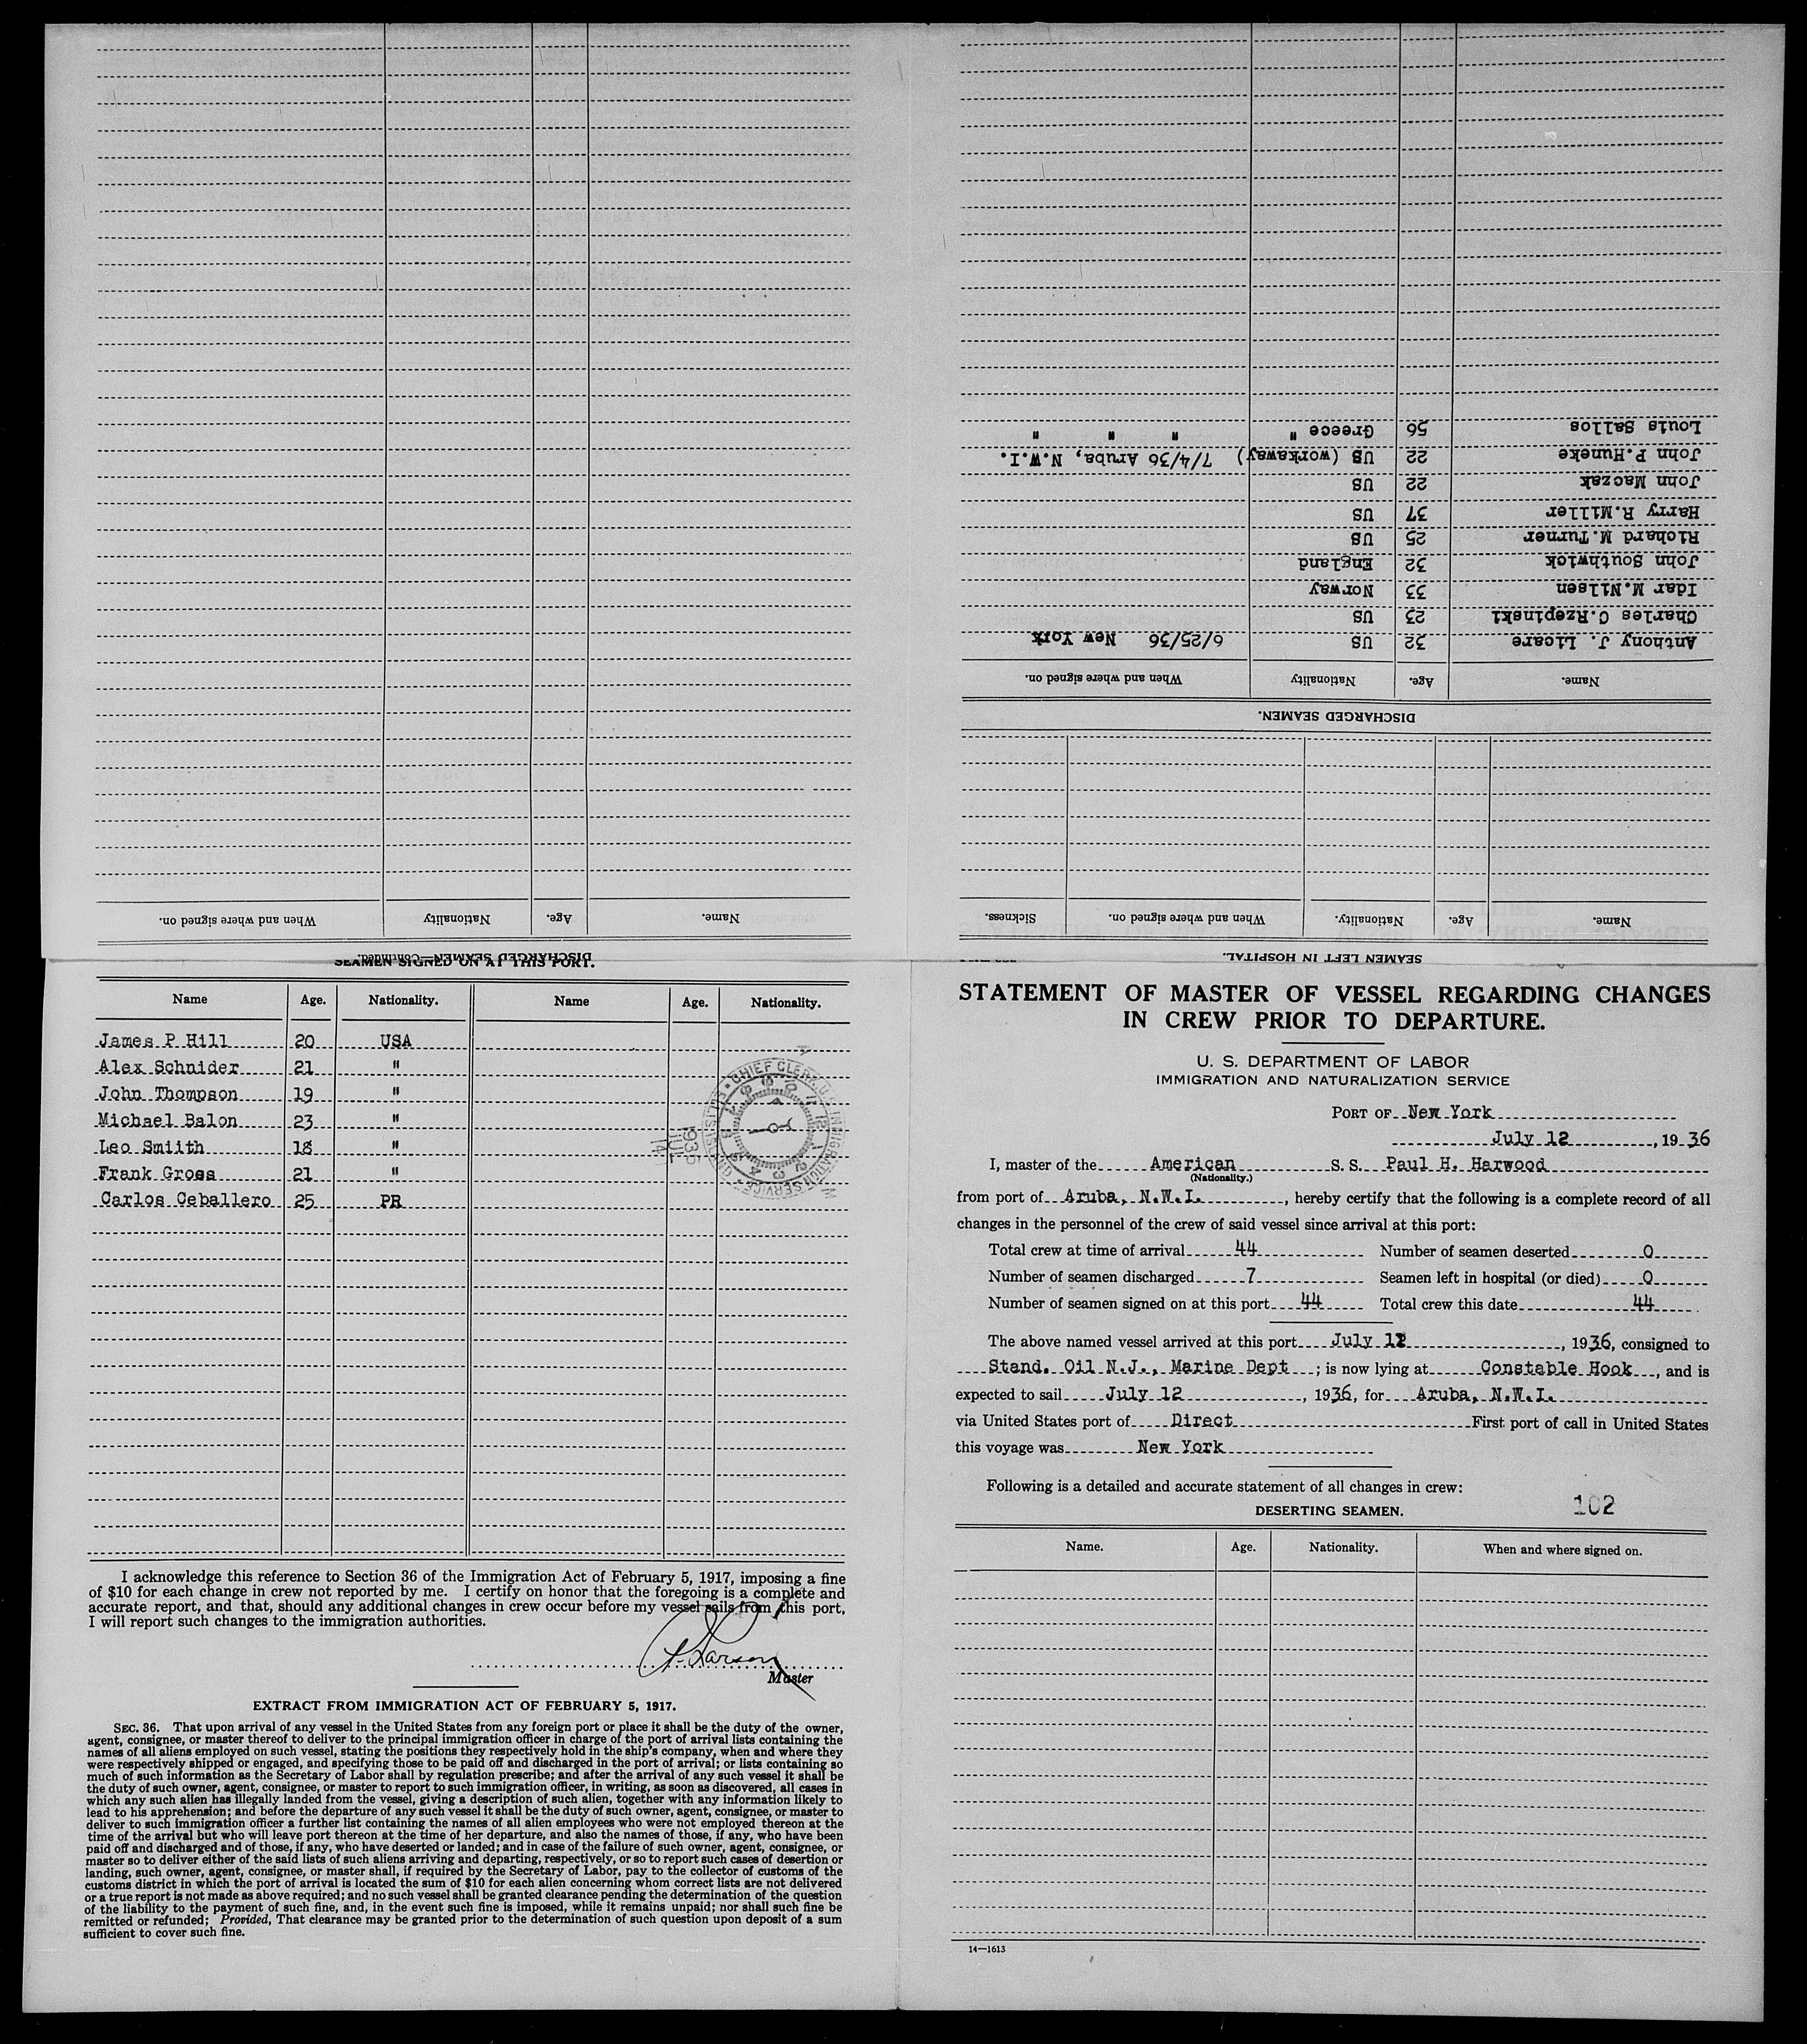 STATEMENT OF MASTER OF VESSEL REGARDING CHANGES
IN CREW PRIOR TO DEPARTURE.
U. S. DEPARTMENT OF LABOR
IMMIGRATION AND NATURALIZATION SERVICE
PORT OF New York
July 12, 1936
I, master of the American S. S. Paul H. Harwood
(Nationality.)
from port of Aruba, N.W.I., hereby certify that the following is a complete record of all
changes in the personnel of the crew of said vessel since arrival at this port:
Total crew at time of arrival 44 Number of seamen deserted 0
Number of seamen discharged 7 Seamen left in hospital (or died) 0
Number of seamen signed on at this port 44 Total crew this date 44
The above named vessel arrived at this port July 12, 1936, consigned to
Stand. Oil N.J., Marine Dept; is now lying at Constable Hook, and is
expected to sail July 12, 1936, for Aruba, N.W.I.
via United States port of Direct First port of call in United States
this voyage was New York
Following is a detailed and accurate statement of all changes in crew:
102
DESERTING SEAMEN.
Name. Age. Nationality. When and where signed on.
14—1613
SEAMEN LEFT IN HOSPITAL.
Name. Age. Nationality. When and where signed on. Sickness.
DISCHARGED SEAMEN.
Name. Age. Nationality When and where signed on.
Anthony J. Licare 32 US 6/25/36 New York
Charles C.Rzepinski 23 US
Idar M.Nilsen 33 Norway
John Southwick 32 England
Richard M.Turner 25 US
Harry R.Miller 37 US
John Maczak 22 US
John P.Huneke 22 US (workaway) 7/4/36 Aruba, N.W.I.
Louis Sallos 56 Greece " " " "
DISCHARGED SEAMEN—Continued.
Name. Age. Nationality When and where signed on.
SEAMEN SIGNED ON AT THIS PORT.
Name Age. Nationality. Name Age. Nationality.
James P Hill 20 USA
Alex Schnider 21 "
John Thompson 19 "
Michael Balon 23 "
Leo Smiith 18 "
Frank Gross 21 "
Carlos Ceballero 25 PR
CHIEF CLERK U.S. IMMIGRATION SERVICE
1936 JUL
I acknowledge this reference to Section 36 of the Immigration Act of February 5, 1917, imposing a fine
of $10 for each change in crew not reported by me. I certify on honor that the foregoing is a complete and
accurate report, and that, should any additional changes in crew occur before my vessel sails from this port,
I will report such changes to the immigration authorities.
Larson
Master
EXTRACT FROM IMMIGRATION ACT OF FEBRUARY 5, 1917.
SEC. 36. That upon arrival of any vessel in the United States from any foreign port or place it shall be the duty of the owner,
agent, consignee, or master thereof to deliver to the principal immigration officer in charge of the port of arrival lists containing the
names of all aliens employed on such vessel, stating the positions they respectively hold in the ship's company, when and where they
were respectively shipped or engaged, and specifying those to be paid off and discharged in the port of arrival; or lists containing so
much of such information as the Secretary of Labor shall by regulation prescribe; and after the arrival of any such vessel it shall be
the duty of such owner, agent, consignee, or master to report to such immigration officer, in writing, as soon as discovered, all cases in
which any such alien has illegally landed from the vessel, giving a description of such alien, together with any information likely to
lead to his apprehension; and before the departure of any such vessel it shall be the duty of such owner, agent, consignee, or master to
deliver to such immigration officer a further list containing the names of all alien employees who were not employed thereon at the
time of the arrival but who will leave port thereon at the time of her departure, and also the names of those, if any, who have been
paid off and discharged and of those, if any, who have deserted or landed; and in case of the failure of such owner, agent, consignee, or
master so to deliver either of the said lists of such aliens arriving and departing, respectively, or so to report such cases of desertion or
landing, such owner, agent, consignee, or master shall, if required by the Secretary of Labor, pay to the collector of customs of the
customs district in which the port of arrival is located the sum of $10 for each alien concerning whom correct lists are not delivered
or a true report is not made as above required; and no such vessel shall be granted clearance pending the determination of the question
of the liability to the payment of such fine, and, in the event such fine is imposed, while it remains unpaid; nor shall such fine be
remitted or refunded; Provided, That clearance may be granted prior to the determination of such question upon deposit of a sum
sufficient to cover such fine.